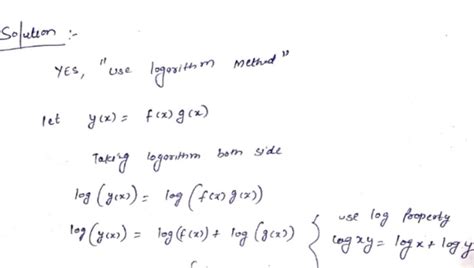 Solution :-
YES, "use logorithm method"
let y(x) = f(x) g(x)
Taking logorithm both side
log (y(x)) = log (f(x) g(x))
log (y(x)) = log(f(x)) + log (g(x)) { use log Property
log xy = log x + log y